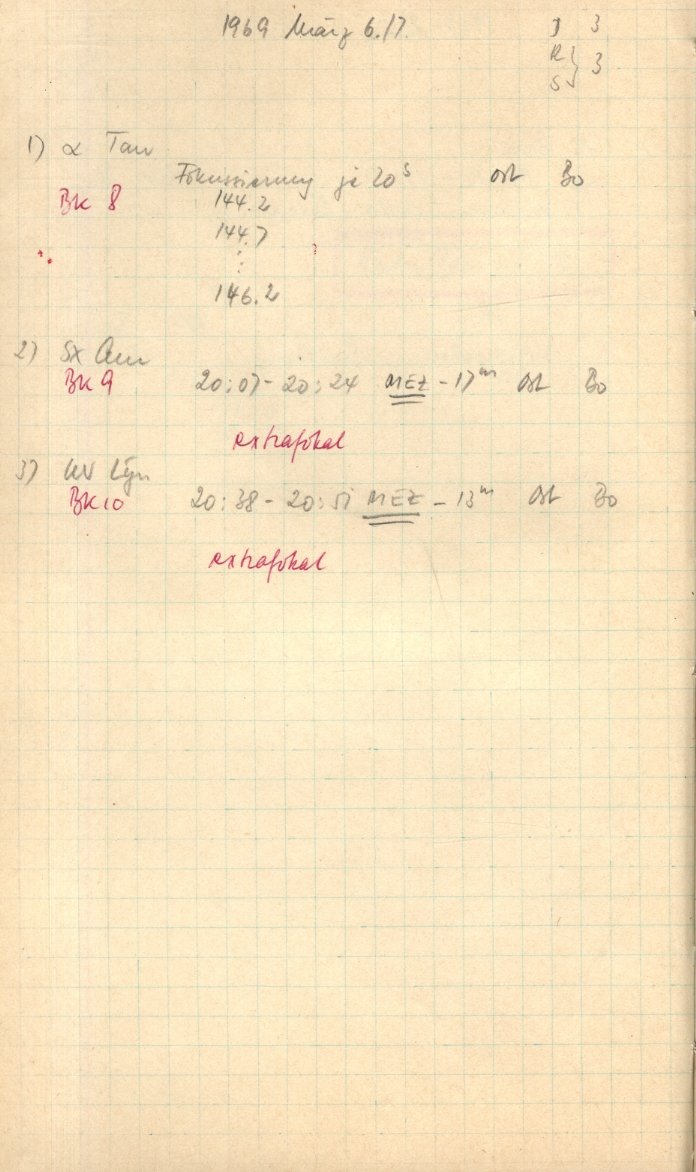 1969 März 6./7. D 3
R } 3
S
1) α Tau
Fokussierung je 20ˢ Ost Bo
BK 8 144.2
144.7
⋮
146.2
2) SX Aur
BK 9 20:07 - 20:24 MEZ - 17ᵐ Ost Bo
extrafokal
3) Lyn
BK 10 20:38 - 20:51 MEZ - 13ᵐ Ost Bo
extrafokal